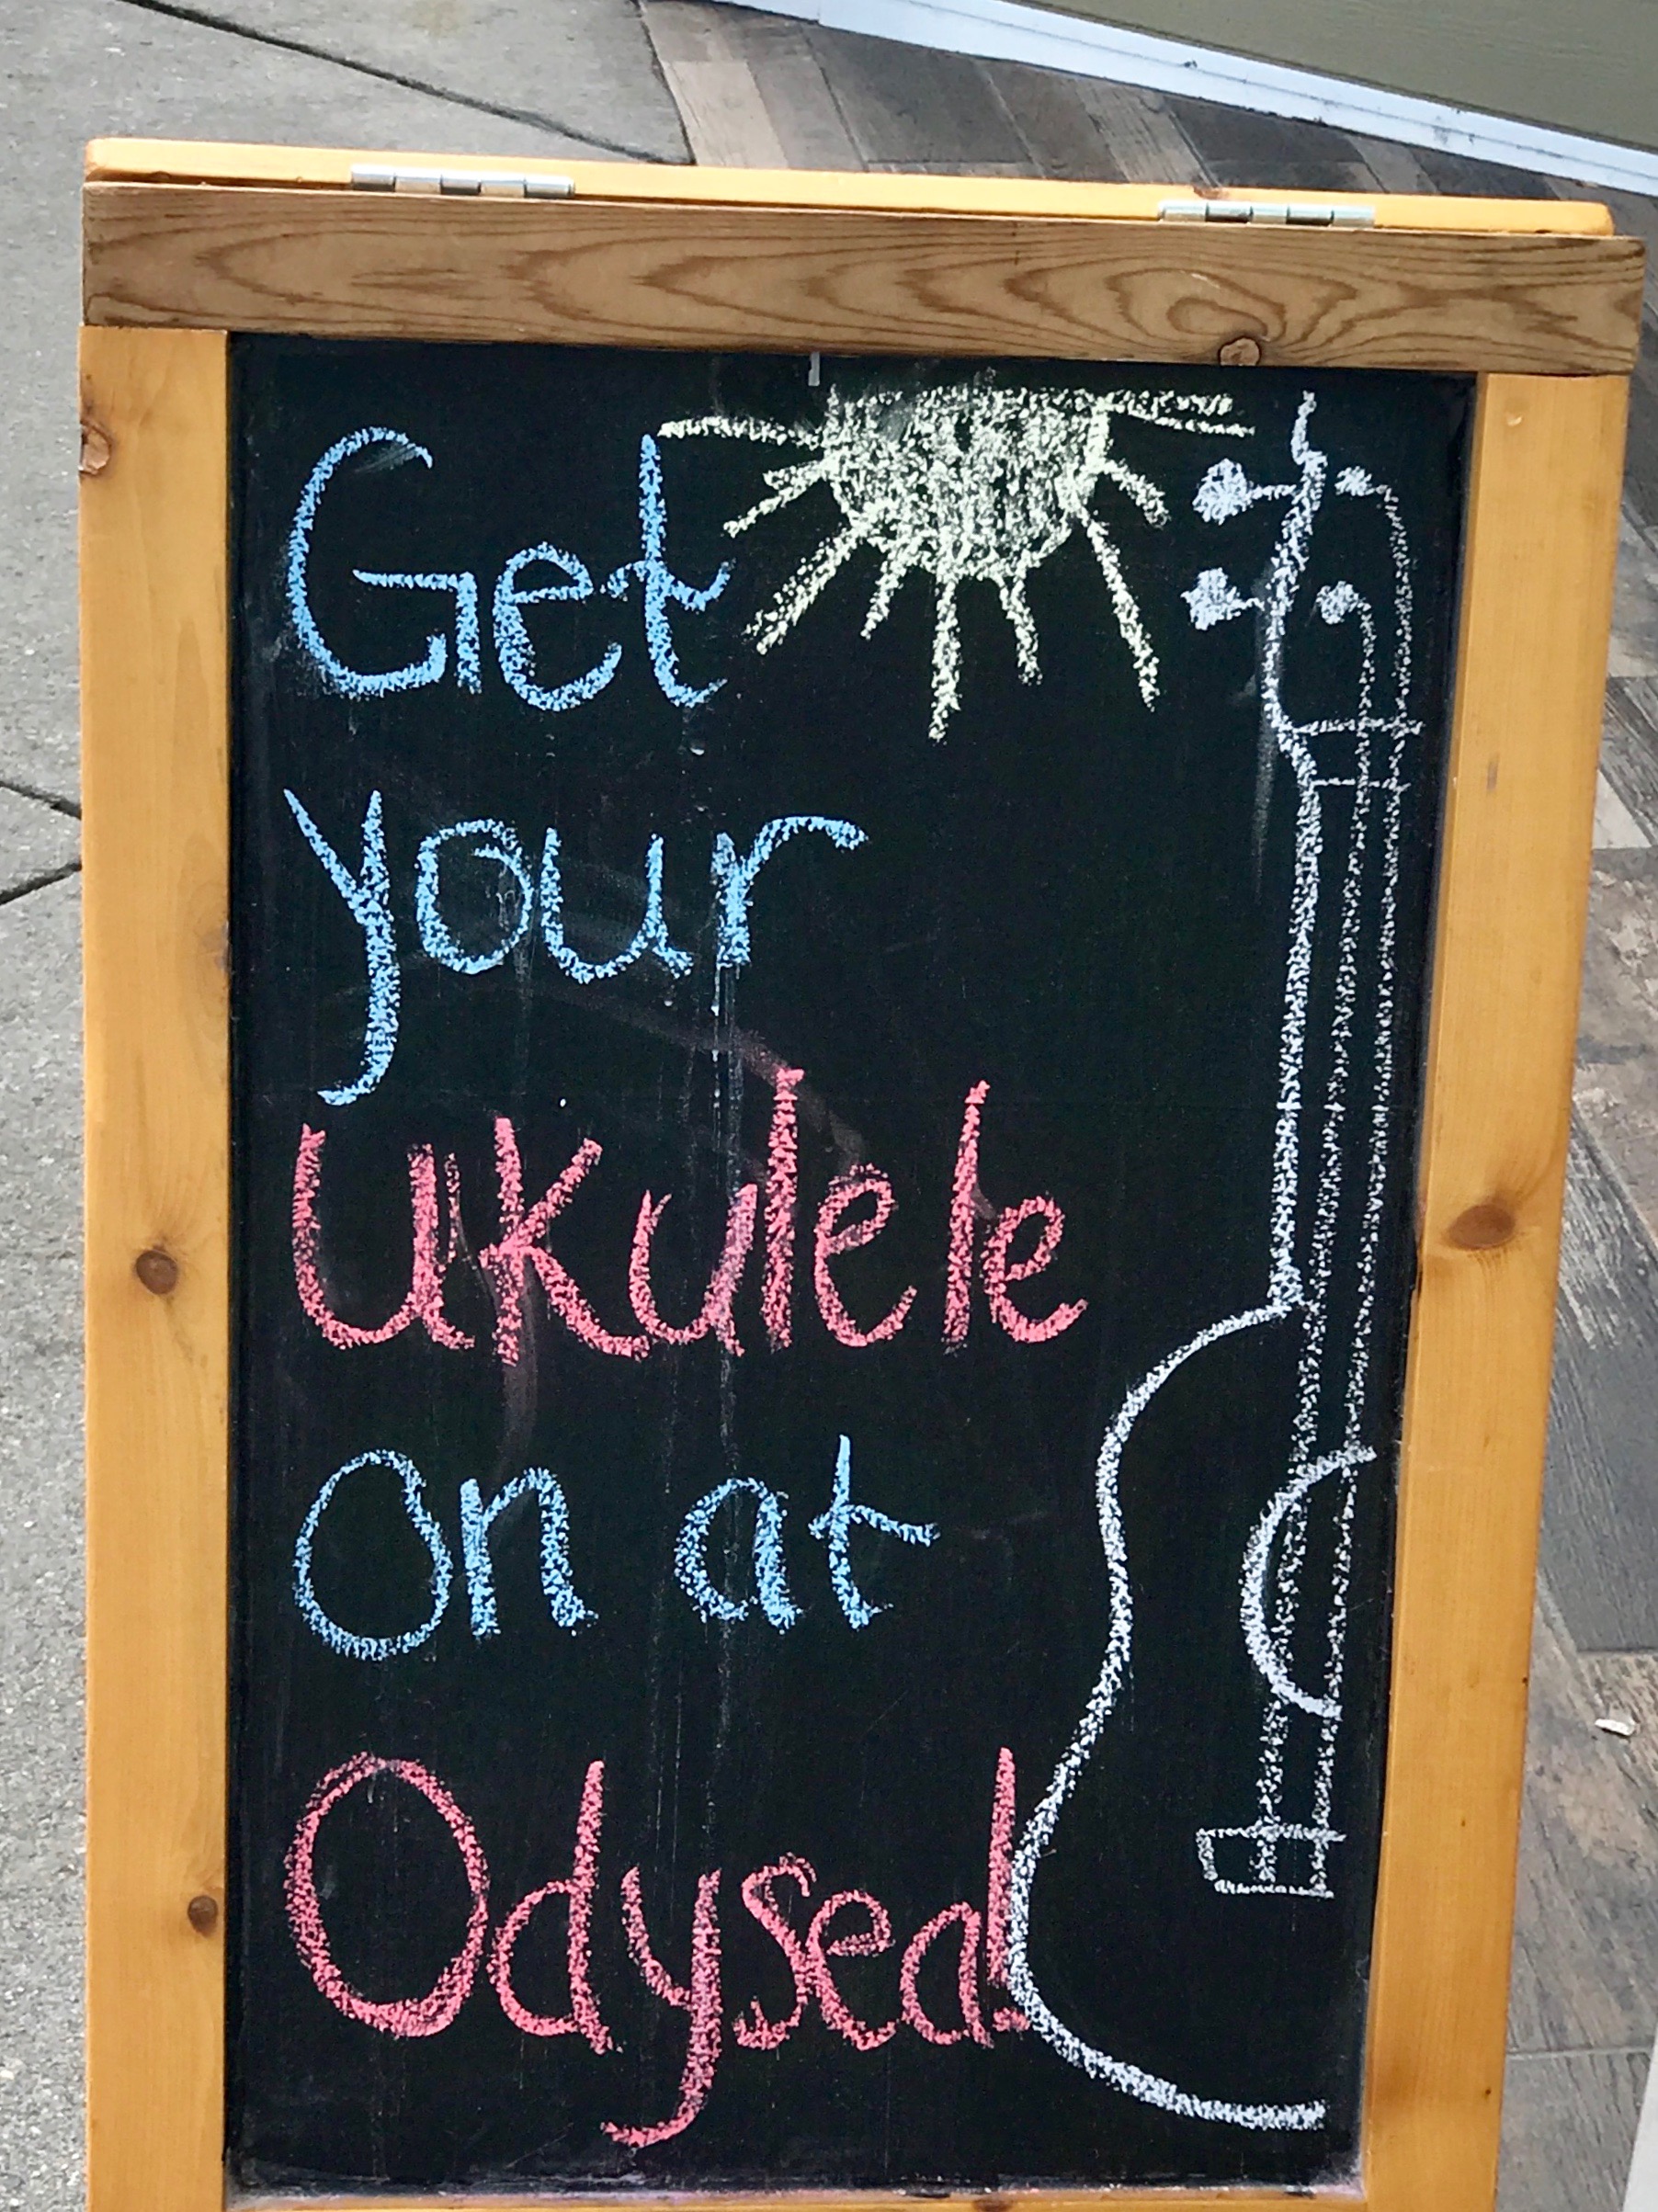 Get
your
Ukulele
on at
Odysea!